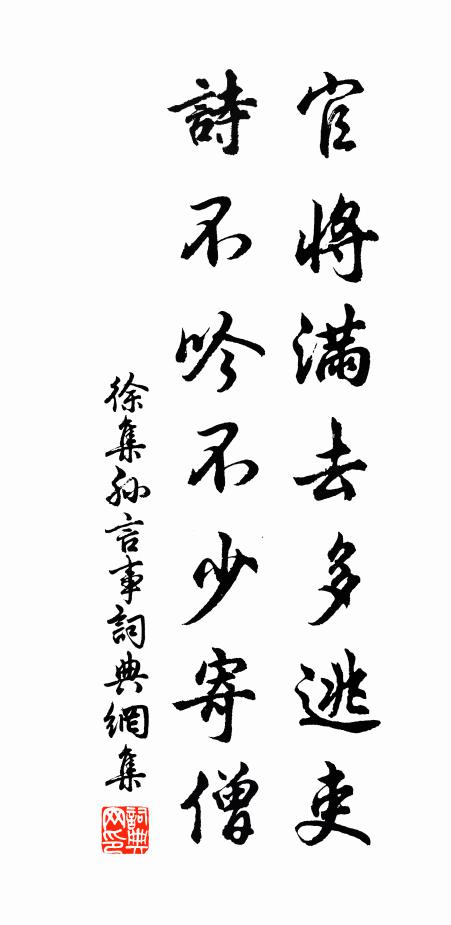 官將滿去多逃吏
詩不吟不少寄僧
徐集孫言事詞典網集
詞典網印